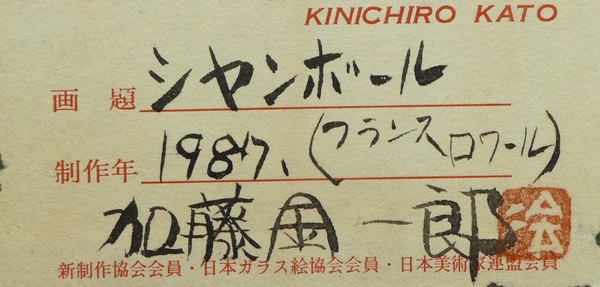 KINICHIRO KATO
画 題 シャンボール
制作年 1987、(フランスロワール)
加藤金一郎 絵
新制作協会会員・日本ガラス絵協会会員・日本美術家連盟会員